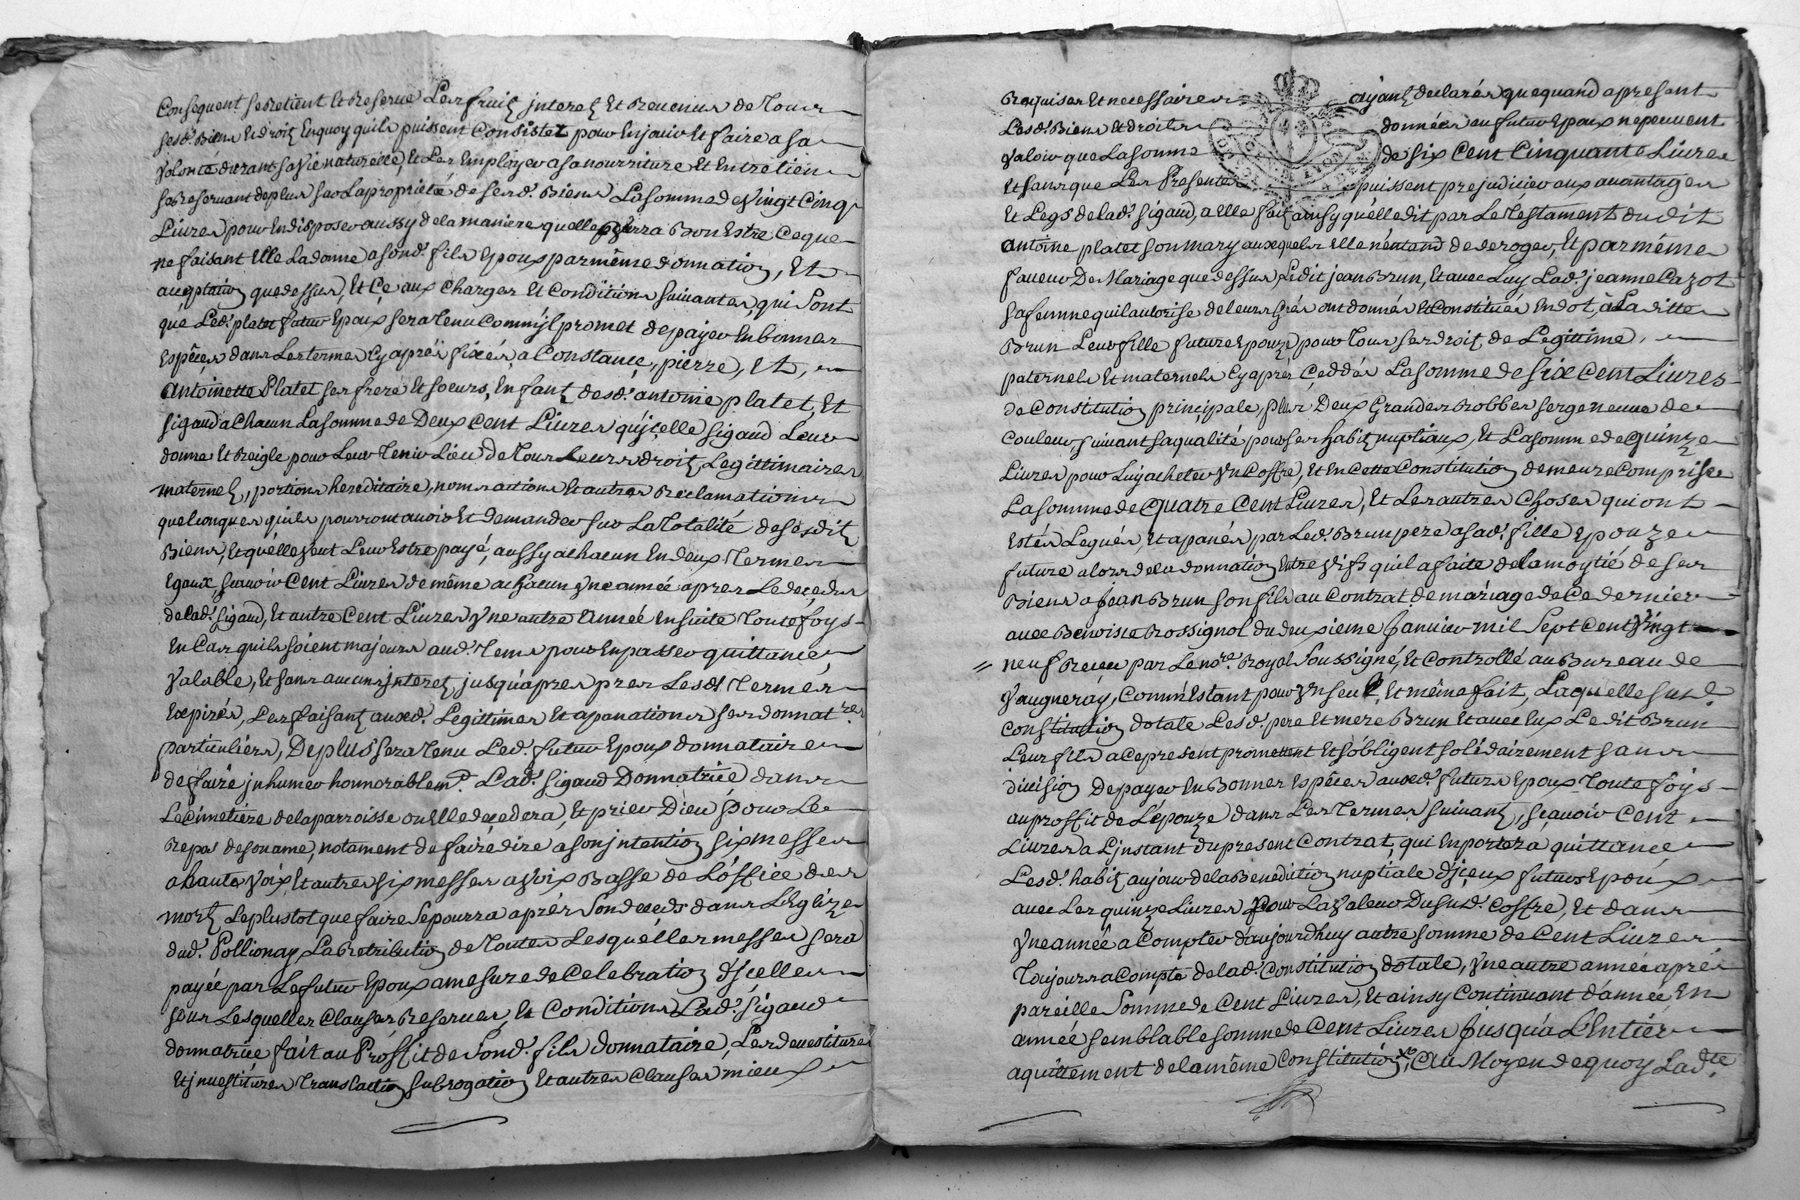 Consequent se Retient Et Reserve Les fruits interets Et Revenus de Tous
sesd. Biens Et droits En quoy quils puissent Consister pour En jouir Et faire a sa
Volonté durant sa vie naturelle, Et Les Employer a sa nourriture Et Entretien
se Reservant de plus sur La proprieté de sesd. Biens La somme de Vingt Cinq
Livres pour En disposer aussy de la maniere quelle verra Bon Estre Ce que
ne faisant Elle La donne a sond. fils Epoux par même donnation, Et
acceptation que dessus, Et Ce aux Charges Et Conditions suivantes, qui sont
que Led. platet futur Epoux sera tenu Comm'il promet de payer En bonnes
Espèces dans Les termes Cy après fixés, a Constance, pierre, Et,
Antoinette Platet ses frere Et soeurs, Enfants desd. antoine platet, Et
sigaud a Chacun La somme de Deux Cent Livres qu'icelle sigaud Leur
donne Et Reigle pour Leur Tenir Lieu de Tous Leurs droits Legittimaires
maternels, portions hereditaire, noms actions Et autres Reclamations
quelconques quils pourront avoir Et demander sur La Totalité de sesdits
Biens, Et qu'elle veut Leur Estre payé, aussy a chacun En deux Termes
Egaux, scavoir Cent Livres de même a chacun Une année apres Le decedes
de Lad. sigaud, Et autre Cent Livres Une autre Année En suite Toute foys
En Cas quils soient majeurs aud. Tems pour En passer quittance
Valable, Et sans aucuns interets jusqu'apres pres Lesd. Termes
Expirés, Les faisant auxd. Legittimes Et apanations ses donnat.res
particuliers, De plus sera Tenu Led. futur Epoux donnataire
de faire inhumer honnorablem.t Lad. sigaud Donnatrice dans
Le Cimetiere de la parroisse ou Elle decedera, Et prier Dieu pour Le
Repos de son ame, notament de faire dire a son intention six messes
a haute Voix Et autres six messes a Voix Basse de L'office des
morts Le plustot que faire se pourra après son deceds dans L'Eglize
dud. Pollionay La Retribution de Toutes Lesquelles messes sera
payée par Le futur Epoux a mesure de Celebration d'Icelles
sous Lesquelles Clauses Reserves, Et Conditions Lad. sigaud
donnatrice fait au Proffit de sond. fils donnataire, Les devestitures
Et investitures Translation subrogation Et autres Clauses mieux
Requises Et necessaires ayants declarés que quand a present
Lesd. Biens Et droits données au futur Epoux ne peuvent
Valoir que La somme de six Cent Cinquante Livres
Et sans que Les Presentes puissent prejudicier aux avantages
Et Legs de lad. sigaud, a Elle fait ainsy qu'elle dit par Le Testament dudit
Antoine platet son mary auxquels Elle n'entend de deroger, Et par même
faveur De Mariage que dessus Ledit jean Brun, Et avec Luy Lad. jeanne Cazot
sa femme quil autorise de leurs grés ont donnés Et Constitués En dot, à Laditte
Brun Leur fille future Epouze pour Tous ses droits de Legittime,
paternels Et maternels Cy après Ceddés La somme de six Cent Livres
de Constitution principale, plus Deux Grandes Robbes serge neuve de
couleur, suivant sa qualité pour ses habits nuptiaux, Et La somme de quinze
Livres pour Luy acheter Un Coffre, Et En Cette Constitution demeure Comprise
La somme de quatre Cent Livres, Et Les autres Choses qui ont
Estés Legués, Et apanés par Led. Brun pere a sad. fille Epouze
future alors de la donnation Entre vifs quil a faite de la moytié de ses
Biens a jean Brun son fils au Contrat de mariage de Ce dernier
avec Benoiste Rossignol du deuxieme janvier mil Sept Cent Vingt
neuf Receu par Le no.re Royal soussigné, Et Controllé au Bureau de
Vaugneray, Comm'Estant pour Un seul, Et même fait, Laquelle susd.
Constitution dotale Lesd. pere Et mere Brun Et avec Eux Ledit Brun
Leur fils a Ce present promettent Et s'obligent solidairement sans
division De payer En Bonnes Espèces auxd. futurs Epoux Toute foys
au proffit de L'épouze dans Les Termes suivants, sçavoir Cent
Livres a L'instant du present Contrat, qui En portera quittance
Lesd. habits au jour de la Benediction nuptiale d'iceux futurs Epoux
avec Les quinze Livres pour La Valeur Dusud. Coffre, Et dans
Une année a Compter d'aujourdhuy autre somme de Cent Livres
Toujours a Compte de lad. Constitution dotale, Une autre année après
pareille somme de Cent Livres, Et ainsy Continuant d'année En
année semblable somme de Cent Livres jusqu'a L'Entier
aquittement de la même Constitution, Au Moyen de quoy Lad.te